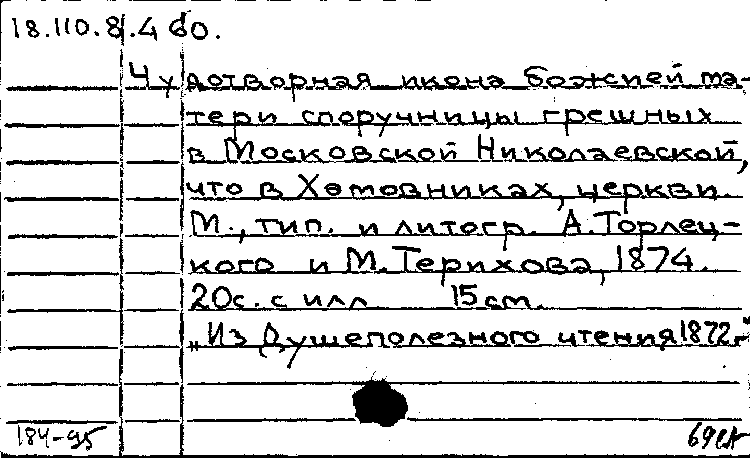 18.110.8.460.
Чудотворная икона божией ма-
тери споручницы грешных
в Московской Николаевской,
что в Хамовниках, церкви.
М., тип. и литогр. А. Торлец-
кого и М. Терихова, 1874.
20с. с илл 15 см.
„Из Душеполезного чтения 1872г."
184-95